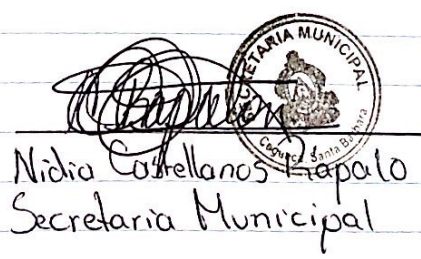 SECRETARIA MUNICIPAL
Santa Barbara
Nidia Castellanos Rapalo
Secretaria Municipal